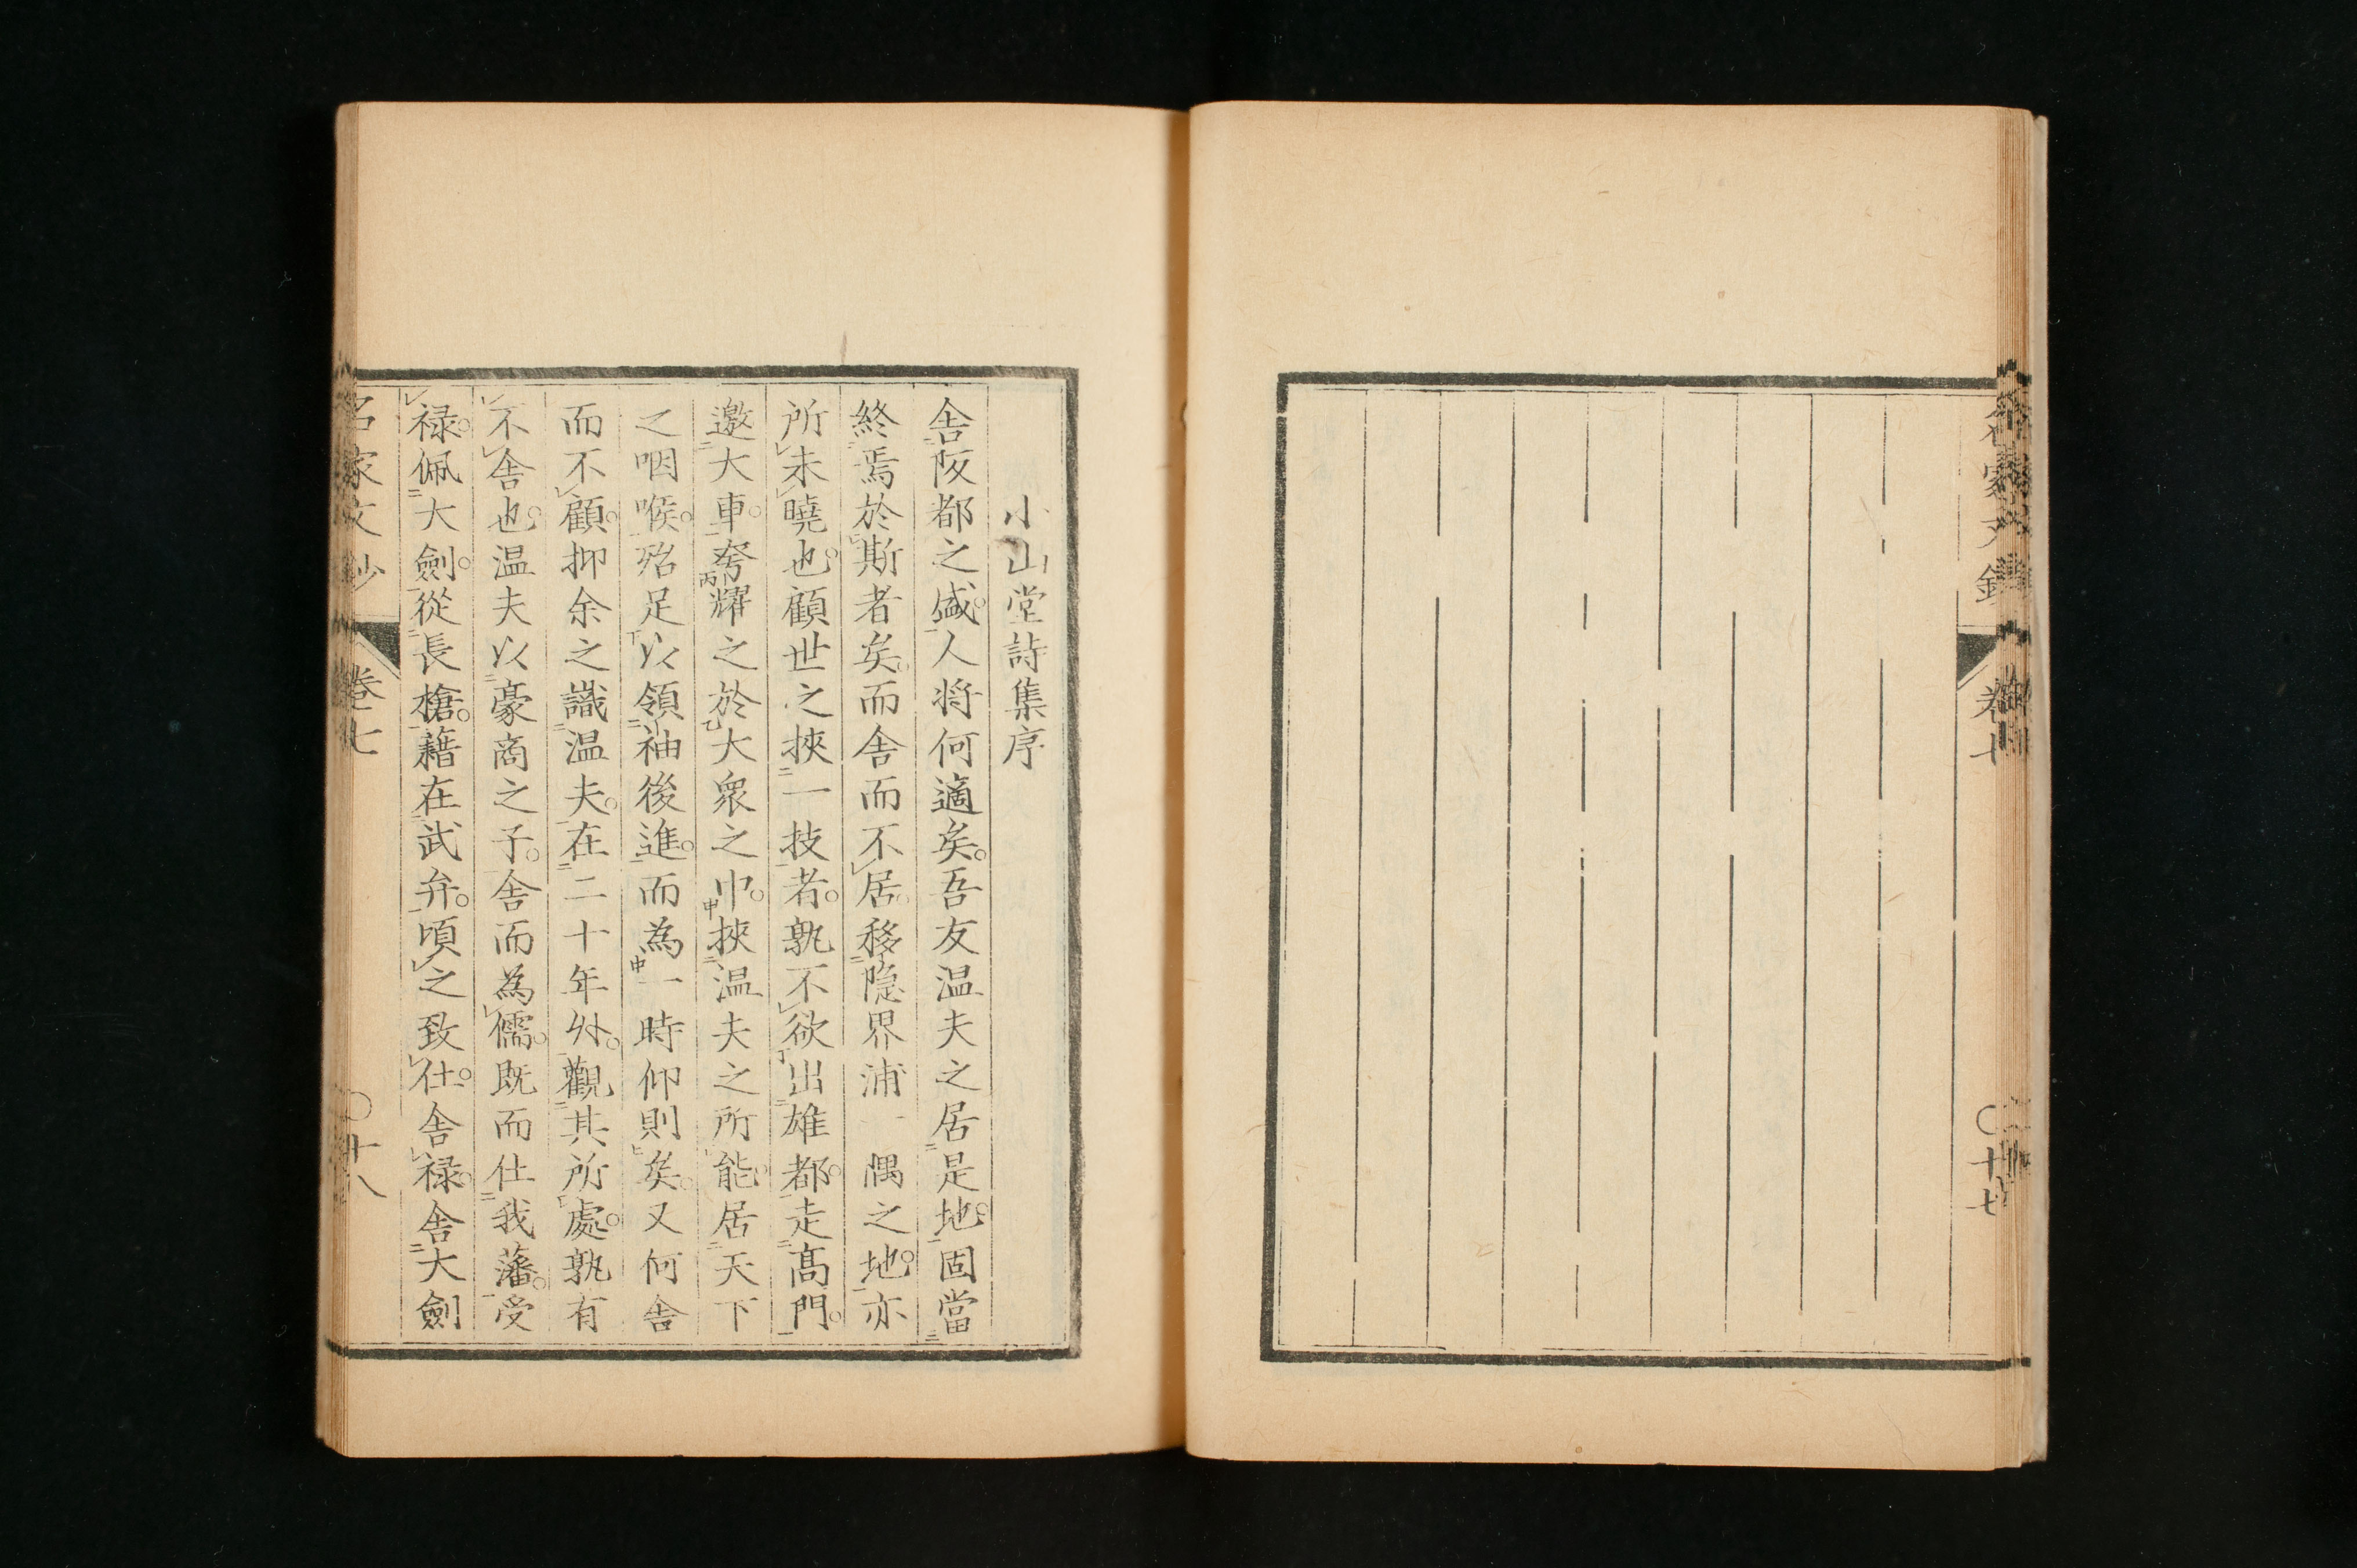 卷七
十七
小山堂詩集序
舎阪都之盛。人将何適矣。吾友温夫之居是地。固當
終焉於斯者矣。而舎而不居。移隠界浦一隅之地。亦
所未曉也。顧世之挾一技者。孰不欲出雄都。走髙門。
邀大車。夸耀之於大衆之中。挾温夫之所能。居天下
之咽喉。殆足以領袖後進。而為一時仰則矣。又何舎
而不顧。抑余之識温夫。在二十年外。觀其所處。孰有
不舎也。温夫以豪商之子。舎而為儒。既而仕我藩。受
禄。佩大劍。從長槍。藉在武弁。頃之致仕。舎禄。舎大劍
名家文抄
卷七
〇十八